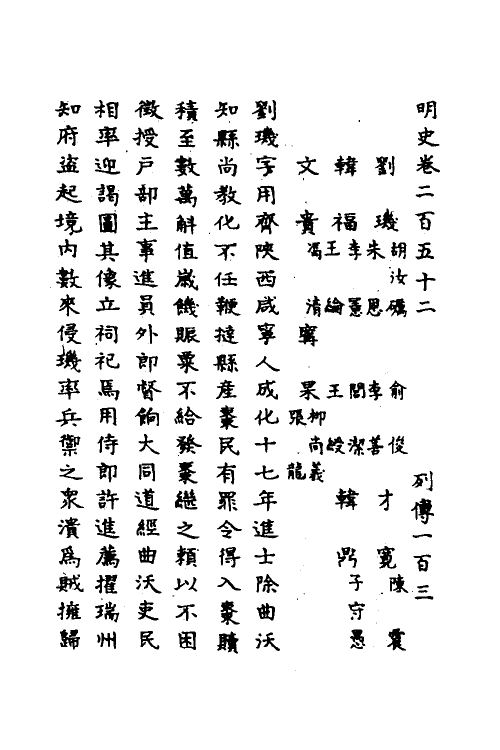 明史卷二百五十二　列傳一百三
劉璣　胡汝礪　朱恩　俞俊　李善　才寬　陳震
韓福　李憲　王綸　閻潔　王綬　韓鼎　子守愚
文貴　馮清　寧杲　柳尚義　張龍
劉璣字用齊陝西咸寧人成化十七年進士除曲沃
知縣尚教化不任鞭撻縣産棗民有罪令得入棗贖
積至數萬斛值歲饑賑粟不給發棗繼之頼以不困
徵授戶部主事進員外郎督餉大同道經曲沃吏民
相率迎謁圖其像立祠祀焉用侍郎許進薦擢瑞州
知府盜起境内數來侵璣率兵禦之衆潰爲賊擁歸